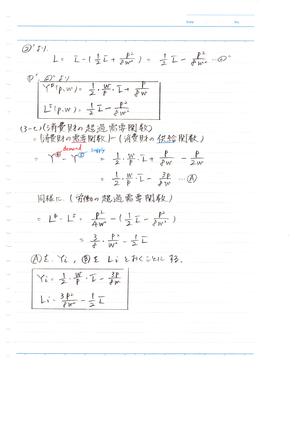 ②' より
L = L̄ - (1/2 L̄ + p²/8w²) = 1/2 L̄ - p²/8w² …②''
①', ②'' より
Y^D(p,w) = 1/2・w/p・L̄ + p/8w
L^S(p,w) = 1/2 L̄ - p²/8w²
(消費財の超過需要関数)
= (消費財の需要関数) - (消費財の供給関数)
demand supply
= Y^D - Y^S = 1/2・w/p・L̄ + p/8w - p/2w
= 1/2・w/p・L̄ - 3p/8w …Ⓐ
同様に (労働の超過需要関数)
= L^D - L^S = p²/4w² - (1/2 L̄ - p²/8w²)
= 3/8・p²/w² - 1/2 L̄
Ⓐを Yi, Ⓑを Li とおくことにする.
Yi = 1/2・w/p・L̄ - 3p/8w
Li = 3p²/8w² - 1/2 L̄